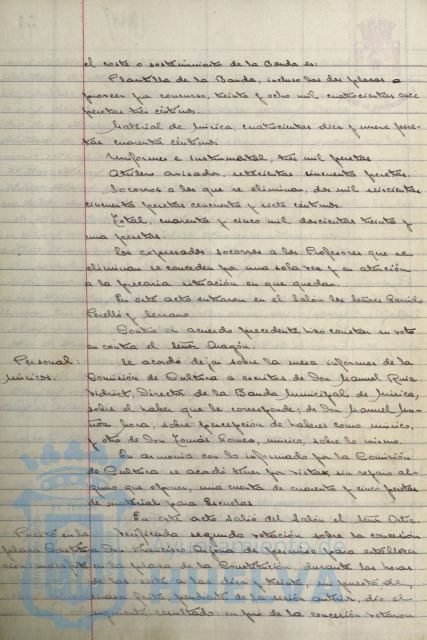 el coste o sostenimiento de la Banda es:
Plantilla de la Banda, incluso las dos plazas a
proveer por concurso, treinta y ocho mil cuatrocientas once
pesetas tres céntimos.
Material de música, cuatrocientas diez y nueve pese-
tas cuarenta céntimos
Uniformes e instrumental, tres mil pesetas
avisador, setecientas cincuenta pesetas.
Socorros a los que se eliminan, dos mil seiscientas
cincuenta pesetas cincuenta y siete céntimos.
Total, cuarenta y cinco mil doscientas treinta y
una pesetas.
Los expresados socorros a los Profesores que se
eliminan se conceden por una sola vez y en atención
a la precaria situación en que quedan.
En este acto entraron en el Salón los Señores Garrido
Perelló y Serrano
Contra el acuerdo precedente hizo constar su voto
en contra el Señor Aragón.
Personal:
músicos.
Se acordó dejar sobre la mesa informes de la
Comisión de Cultura a escritos de Don Manuel Ruiz
Vidriet, Director de la Banda Municipal de Música,
sobre el haber que le corresponde; de Don Manuel Mu-
ñoz Mora, sobre percepción de haberes como músico,
y otro de Don Tomás, músico, sobre lo mismo.
En armonía con lo informado por la Comisión
de Cultura se acordó tener por vistas, sin reparo al-
guno que oponer, una cuenta de cuarenta y cinco pesetas
de material para Escuelas
En este acto salió del Salón el Señor
Puesto en la
plaza Constitu-
ción:
Verificada segunda votación sobre la concesión
a Don Francisco de permiso para establecer
en la plaza de la Constitución, durante las horas
de las siete a las diez y treinta, un puesto de
masa frita, pendiente de la sesión anterior, dio el
siguiente resultado: en pro de la concesión votaron